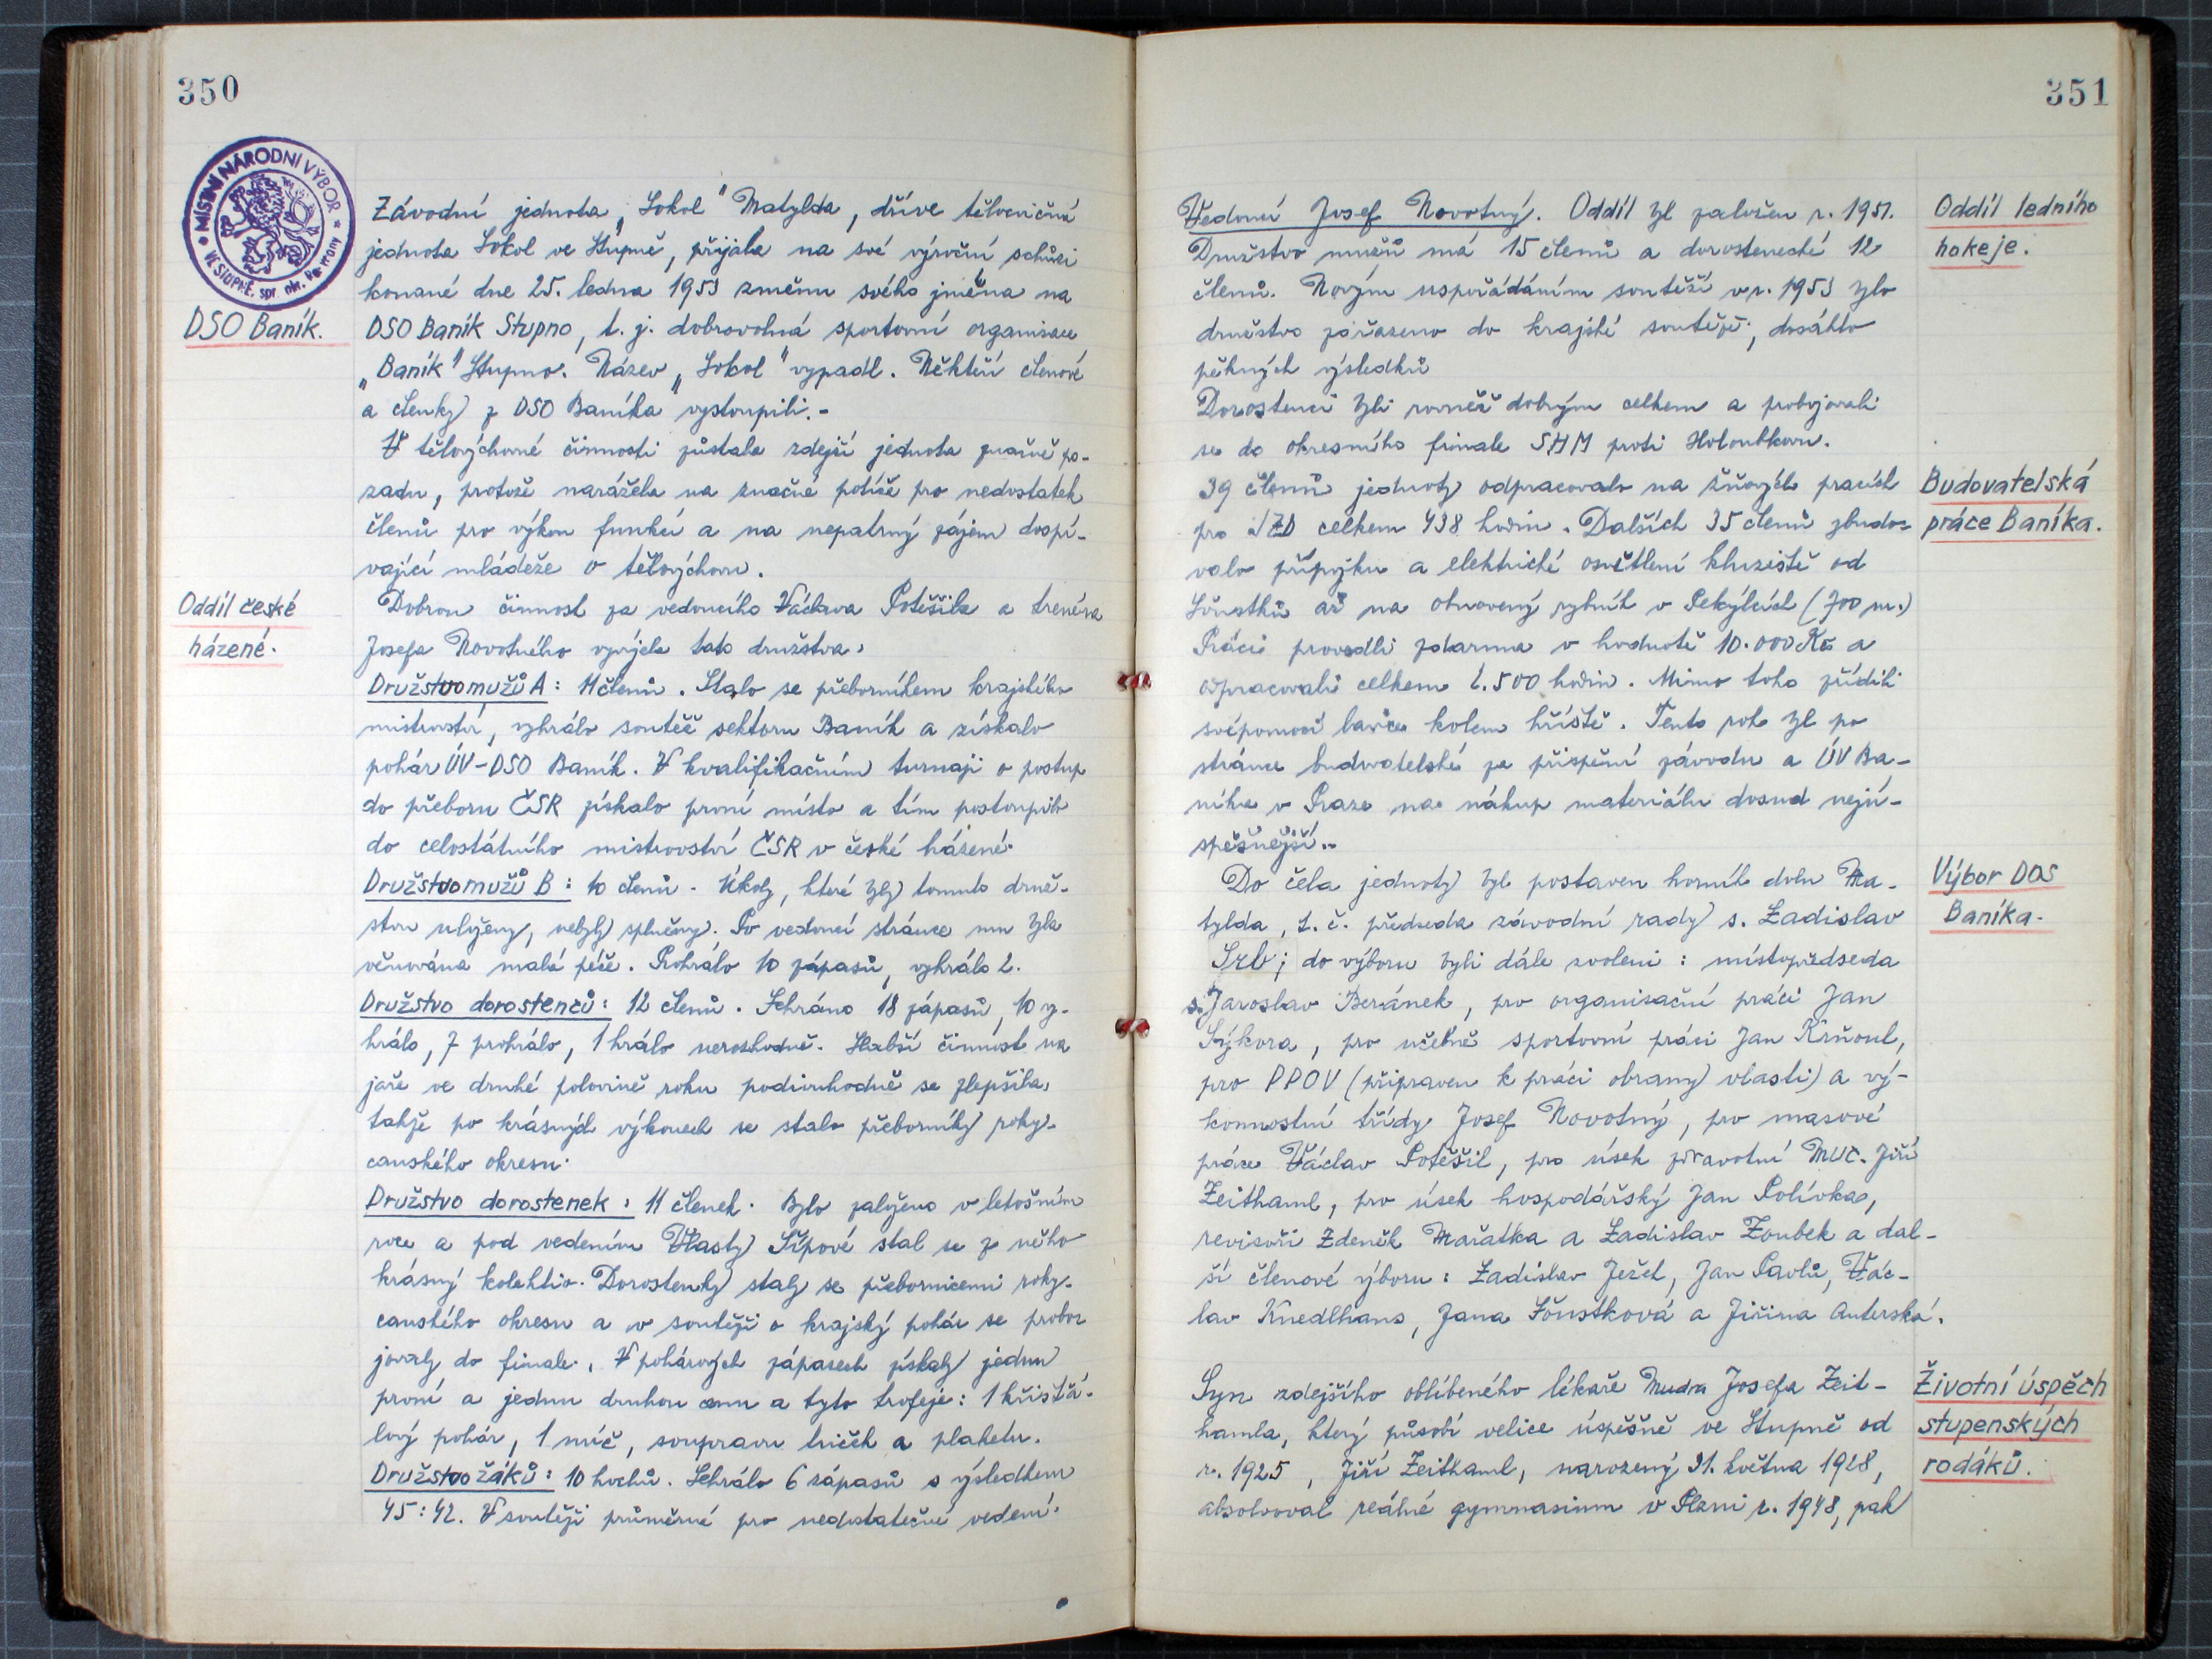 350
MÍSTNÍ NÁRODNÍ VÝBOR
VE STUPNĚ, spr. okr. Rokycany
DSO Baník.
Závodní jednota „Sokol" Matylda, dříve tělocvičná
jednota Sokol ve Stupně, přijala na své výroční schůzi
konané dne 25. ledna 1953 změnu svého jména na
DSO Baník Stupno, t. j. dobrovolná sportovní organisace
„Baník" Stupno. Název „Sokol" vypadl. Někteří členové
a členky z DSO Baníka vystoupili.-
V tělovýchovné činnosti zůstala zdejší jednota značně po-
zadu, protože narážela na značné potíže pro nedostatek
členů pro výkon funkcí a na nepatrný zájem dospí-
vající mládeže o tělovýchovu.
Oddíl české
házené.
Dobrou činnost za vedoucího Václava Potěšila a trenéra
Josefa Novotného vyvíjela tato družstva:
Družstvo mužů A: 11 členů. Stalo se přeborníkem krajského
mistrovství, vyhrálo soutěž sektoru Baník a získalo
pohár ÚV-DSO Baník. V kvalifikačním turnaji o postup
do přeboru ČSR získalo první místo a tím postoupilo
do celostátního mistrovství ČSR v české házené.
Družstvo mužů B: 10 členů. Úkoly, které byly tomuto druž-
stvu uloženy, nebyly splněny. Po vedoucí stránce mu byla
věnována malá péče. Prohrálo 10 zápasů, vyhrálo 2.
Družstvo dorostenců: 12 členů. Sehráno 18 zápasů, 10 vy-
hrálo, 7 prohrálo, 1 hrálo nerozhodně. Slabší činnost na
jaře ve druhé polovině roku podivuhodně se zlepšila,
takže po krásných výkonech se stalo přeborníky roky-
canského okresu.
Družstvo dorostenek: 11 členek. Bylo založeno v letošním
roce a pod vedením Vlasty Šípové stal se z něho
krásný kolektiv. Dorostenky staly se přebornicemi roky-
canského okresu a v soutěži o krajský pohár se probo-
jovaly do finale. V pohárových zápasech získaly jednu
první a jednu druhou cenu a tyto trofeje: 1 křišťá-
lový pohár, 1 míč, soupravu triček a plaketu.
Družstvo žáků: 10 hochů. Sehrálo 6 zápasů s výsledkem
45:42. V soutěži průměrné pro nedostatečné vedení.
351
Oddíl ledního
hokeje.
Vedoucí Josef Novotný. Oddíl byl založen r. 1951.
Družstvo mužů má 15 členů a dorostenecké 12
členů. Novým uspořádáním soutěží v r. 1953 bylo
družstvo zařazeno do krajské soutěže; dosáhlo
pěkných výsledků
Dorostenci byli rovněž dobrým celkem a probojovali
se do okresního finale SHM proti Holoubkovu.
Budovatelská
práce Baníka.
39 členů jednoty odpracovalo na žňových pracích
pro JZD celkem 438 hodin. Dalších 35 členů zbudo-
valo přípojku a elektrické osvětlení kluziště od
Lőustků až na obnovený rybník v Pekýlcích (700 m.)
Práci provedli zdarma v hodnotě 10.000 Kčs a
odpracovali celkem 1.500 hodin. Mimo toho zřídili
svépomocí lavice kolem hřiště. Tento rok byl po
stránce budovatelské za přispění závodu a ÚV Ba-
níka v Praze na nákup materiálu dosud nejú-
spěšnější.-
Výbor DOS
Baníka.
Do čela jednoty byl postaven horník dolu Ma-
tylda, t. č. předseda závodní rady s. Ladislav
Srb; do výboru byli dále zvoleni: místopředseda
s. Jaroslav Beránek, pro organisační práci Jan
Sýkora, pro učebně sportovní práci Jan Krňoul,
pro PPOV (připraven k práci obrany vlasti) a vý-
konnostní třídy Josef Novotný, pro masové
práce Václav Potěšil, pro úsek zdravotní MUC. Jiří
Zeithaml, pro úsek hospodářský Jan Polívka,
revisoři Zdeněk Mařatka a Ladislav Zoubek a dal-
ší členové výboru: Ladislav Ježek, Jan Pavlů, Vác-
lav Knedlhans, Jana Lőustková a Jiřina Auterská.
Životní úspěch
stupenských
rodáků.
Syn zdejšího oblíbeného lékaře Mudra Josefa Zeit-
hamla, který působí velice úspěšně ve Stupně od
r. 1925, Jiří Zeithaml, narozený 31. května 1928,
absolvoval reálné gymnasium v Plzni r. 1948, pak